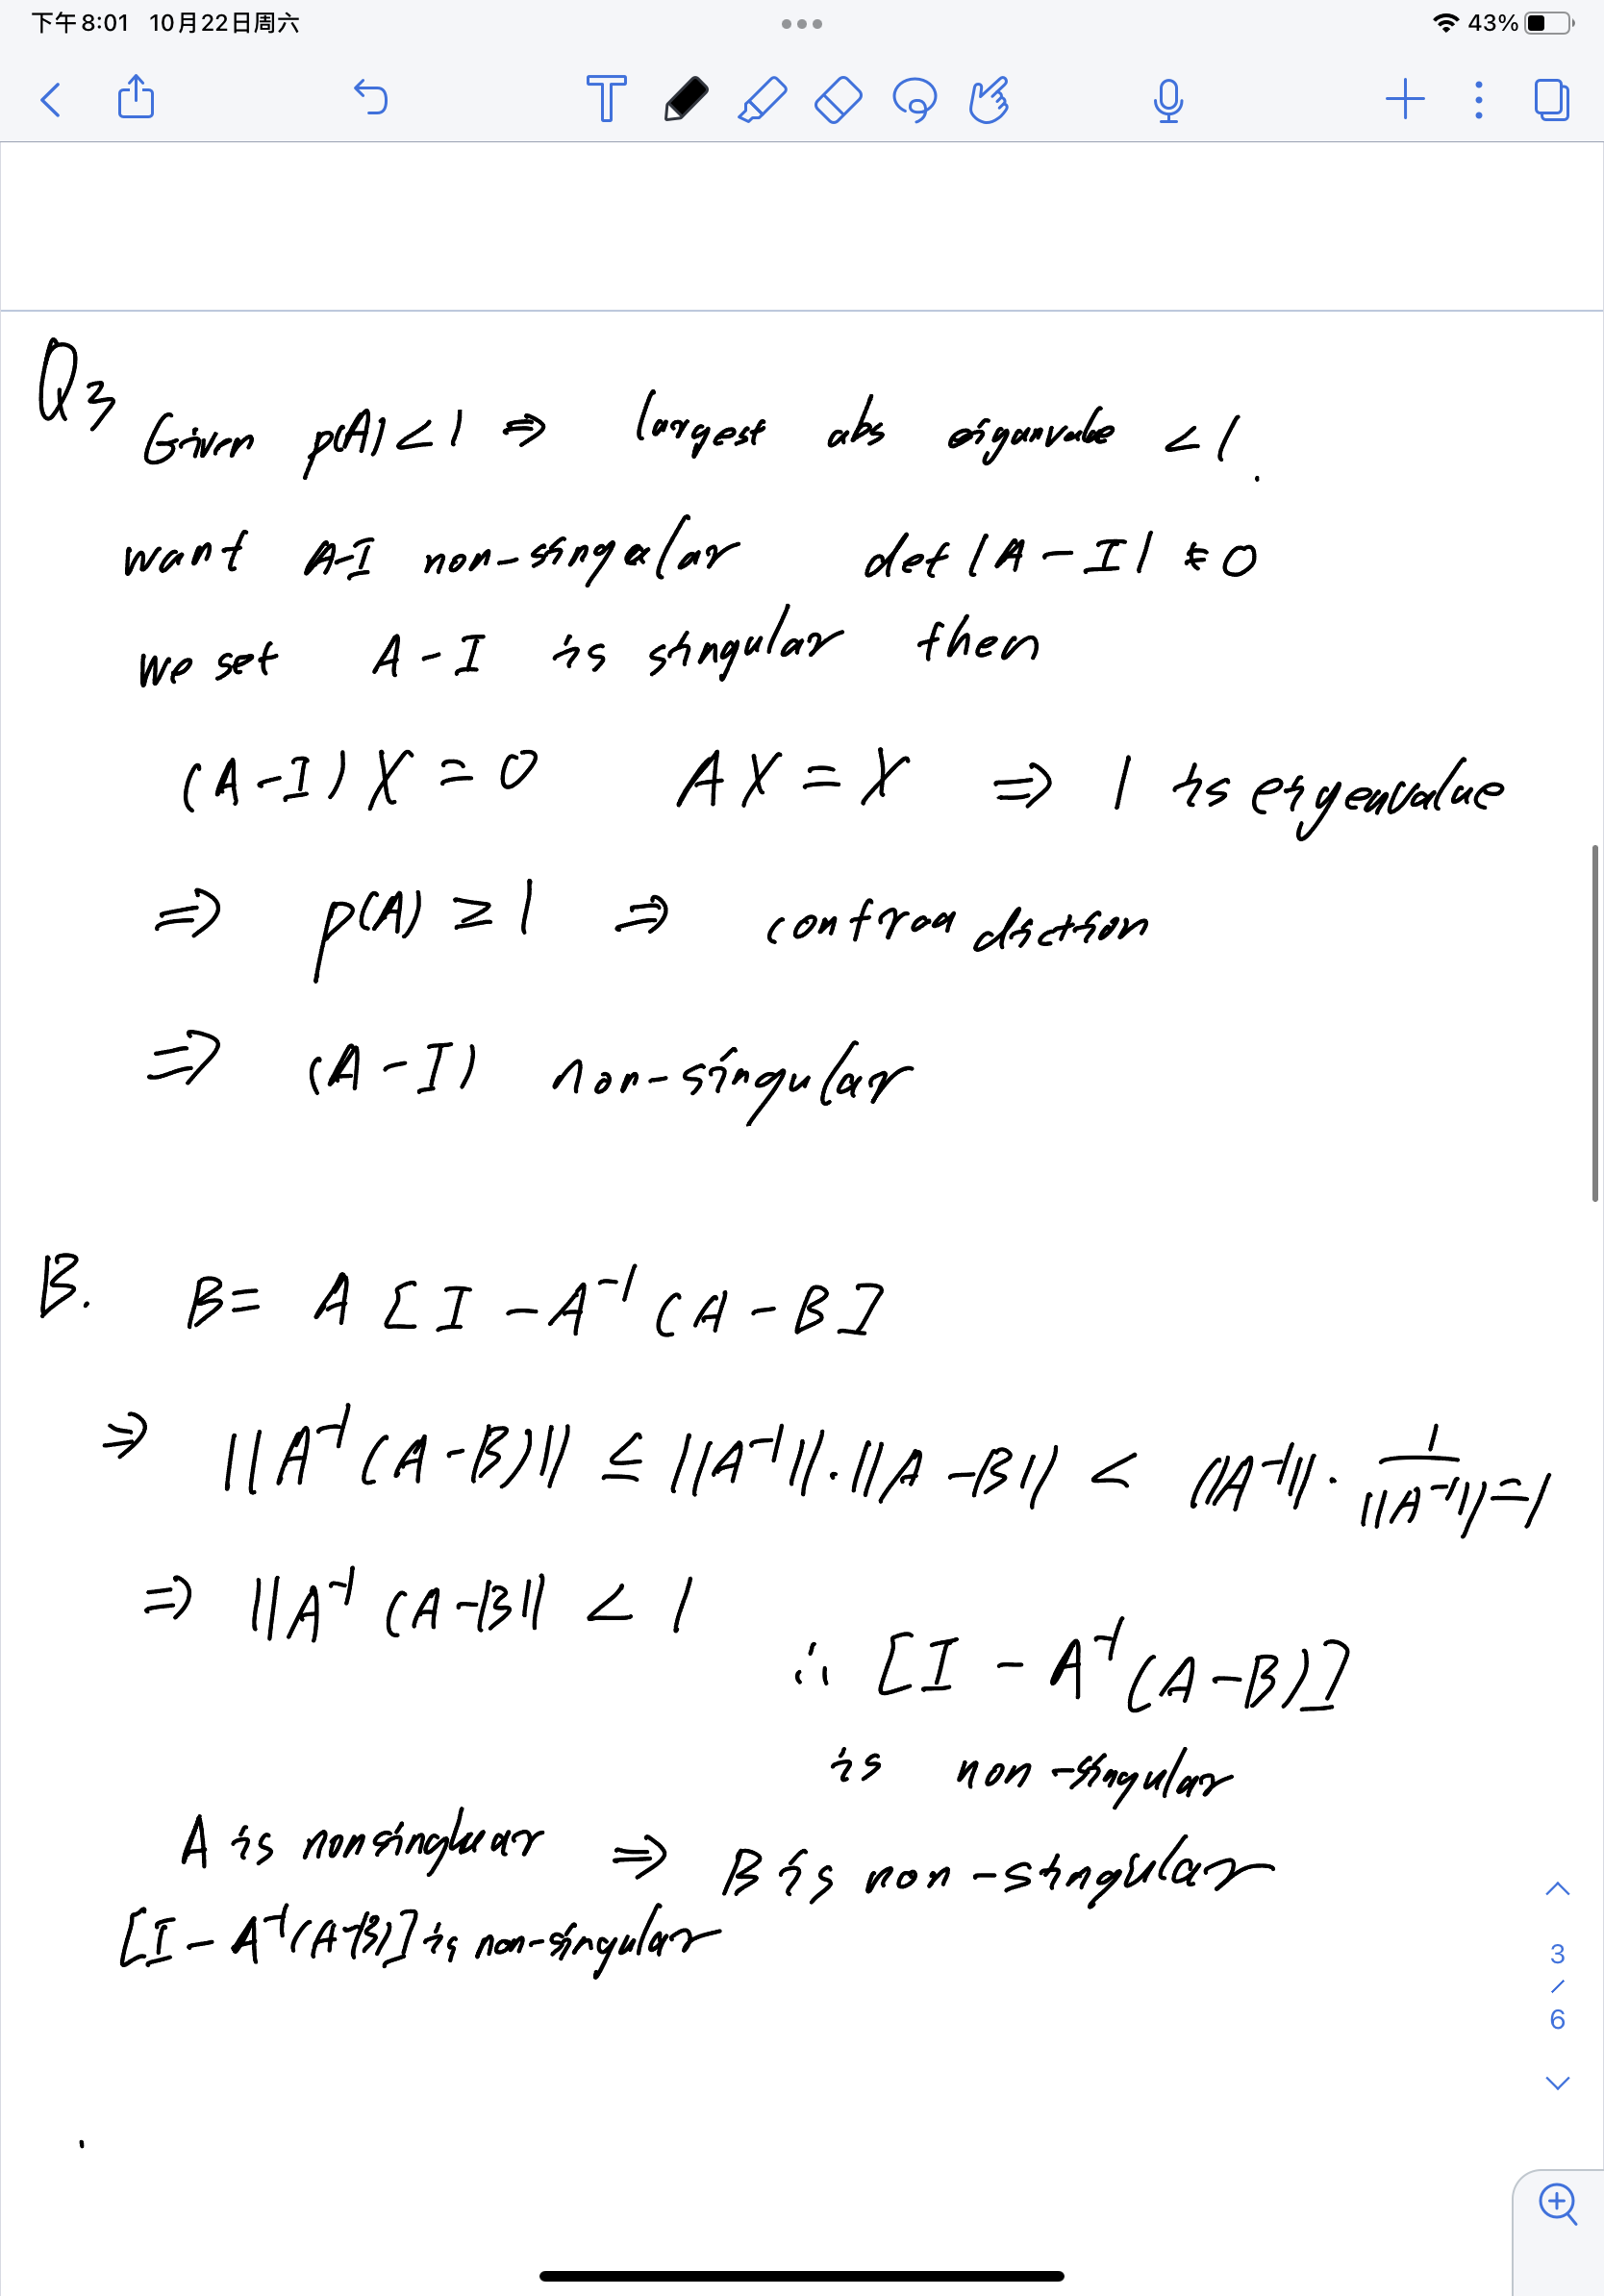 下午8:01 10月22日周六 43%
Q3
Given ρ(A) < 1 ⇒ largest abs eiganvalue < 1.
want A-I non-singular det |A - I| ≠ 0
we set A - I is singular then
(A - I) X = 0 AX = X ⇒ 1 is eigenvalue
⇒ ρ(A) ≥ 1 ⇒ contraa diction
⇒ (A - I) non-singular
B. B = A [I - A⁻¹ (A - B]
⇒ ||A⁻¹(A-B)|| ≤ ||A⁻¹||·||A-B|| < ||A⁻¹||· 1/||A⁻¹|| = 1
⇒ ||A⁻¹ (A-B|| < 1
∴ [I - A⁻¹(A-B)]
is non-singular
A is nonsingluar ⇒ B is non-singular
[I - A⁻¹(A-B)] is non-singular
3
/
6